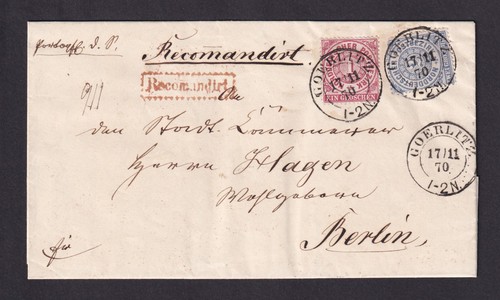 Recomandirt.
Recomandirt
An
den Stadt-Cämmerer
Herrn Hagen
Wohlgeboren
Berlin.
fr.
EIN GROSCHEN
GOERLITZ
17/11
70
1-2N.
GOERLITZ
17/11
70
1-2N.
GOERLITZ
17/11
70.
1-2N.